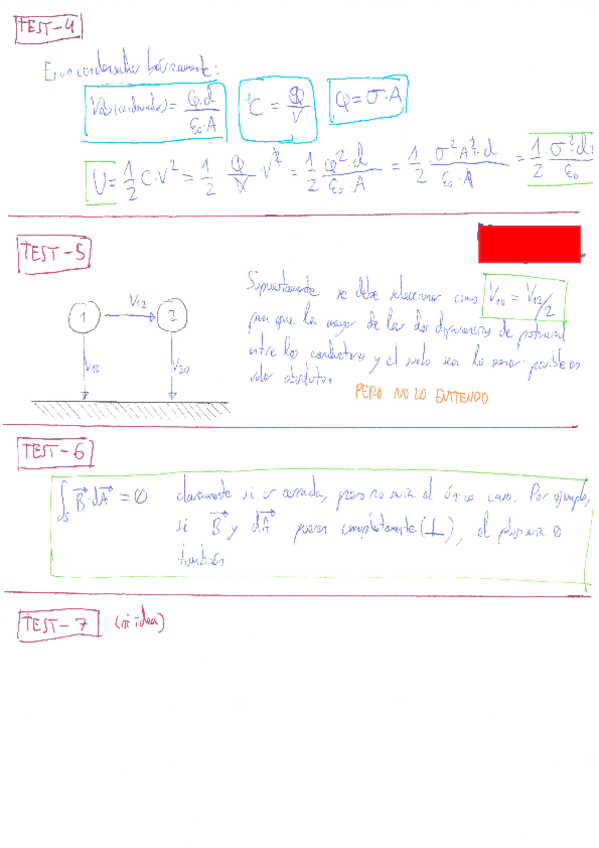 TEST-4
Es un condensador básicamente:
V(condensador) = Q·d / ε₀·A
C = Q/V
Q = σ·A
U = 1/2 C·V² = 1/2 Q/V · V² = 1/2 Q²·d / ε₀·A = 1/2 σ²·A²·d / ε₀·A = 1/2 σ²·d / ε₀
TEST-5
1 V₁₂ 2
V₁₀ V₂₀
Supuestamente se debe seleccionar como V₁₀ = V₁₂/2
para que la mayor de las dos diferencias de potencial
entre los conductores y el suelo sea lo menor posible en
valor absoluto.
PERO NO LO ENTIENDO
TEST-6
∫ₛ B·dA = 0 claramente si es cerrada, pero no sería el único caso. Por ejemplo,
si B y dA fueran completamente (⊥), el flujo sería 0
también.
TEST-7 (ni idea)